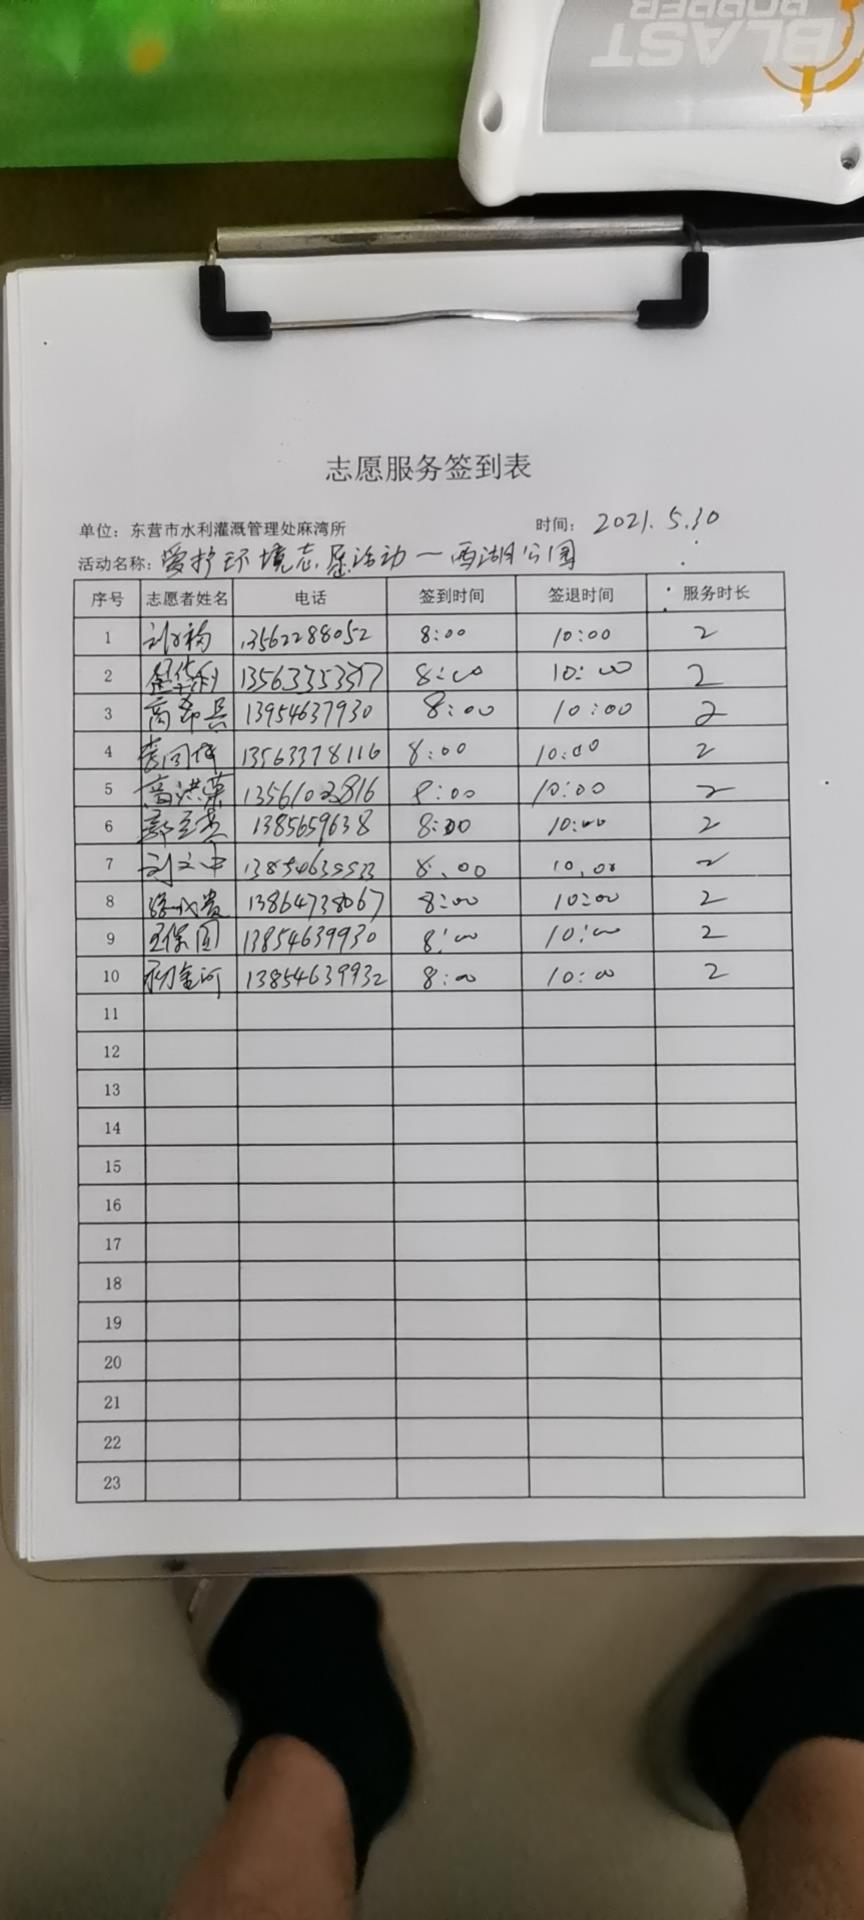 BLAST
POPPER
志愿服务签到表
单位：东营市水利灌溉管理处麻湾所 时间：2021.5.30
活动名称：爱护环境志愿活动—西湖公园
序号 志愿者姓名 电话 签到时间 签退时间 服务时长
1 13562288052 8:00 10:00 2
2 8:00 10:00 2
3 高希兵 13954637930 8:00 10:00 2
4 13563378116 8:00 10:00 2
5 高洪荣 8:00 10:00 2
6 1385659638 8:00 10:00 2
7 刘文中 8.00 10.00 2
8 13864738067 8:00 10:00 2
9 王保国 13854639930 8:00 10:00 2
10 初金河 13854639932 8:00 10:00 2
11
12
13
14
15
16
17
18
19
20
21
22
23